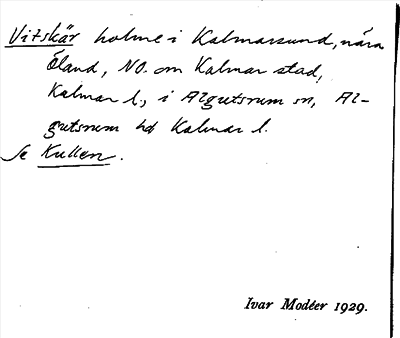 Vitskär holme i Kalmarsund, nära
Öland, NO. om Kalmar stad,
Kalmar l., i Algutsrum sn, Al-
gutsrum hd Kalmar l.
Se Kullen.
Ivar Modéer 1929.